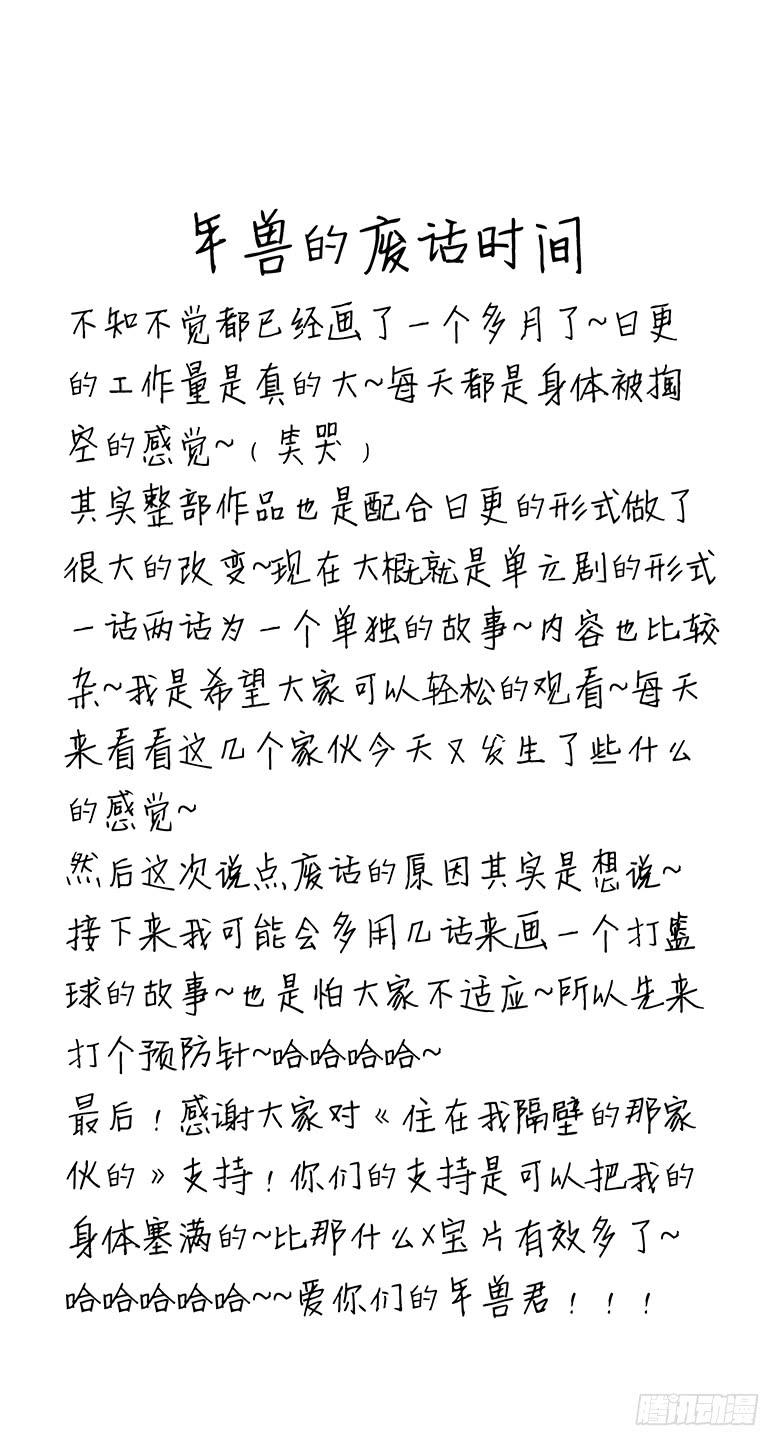 年兽的废话时间
不知不觉都已经画了一个多月了~日更
的工作量是真的大~每天都是身体被掏
空的感觉~(笑哭)
其实整部作品也是配合日更的形式做了
很大的改变~现在大概就是单元剧的形式
一话两话为一个单独的故事~内容也比较
杂~我是希望大家可以轻松的观看~每天
来看看这几个家伙今天又发生了些什么
的感觉~
然后这次说点废话的原因其实是想说~
接下来我可能会多用几话来画一个打篮
球的故事~也是怕大家不适应~所以先来
打个预防针~哈哈哈哈~
最后!感谢大家对《住在我隔壁的那家
伙的》支持!你们的支持是可以把我的
身体塞满的~比那什么X宝片有效多了~
哈哈哈哈哈~~爱你们的年兽君!!!
腾讯动漫